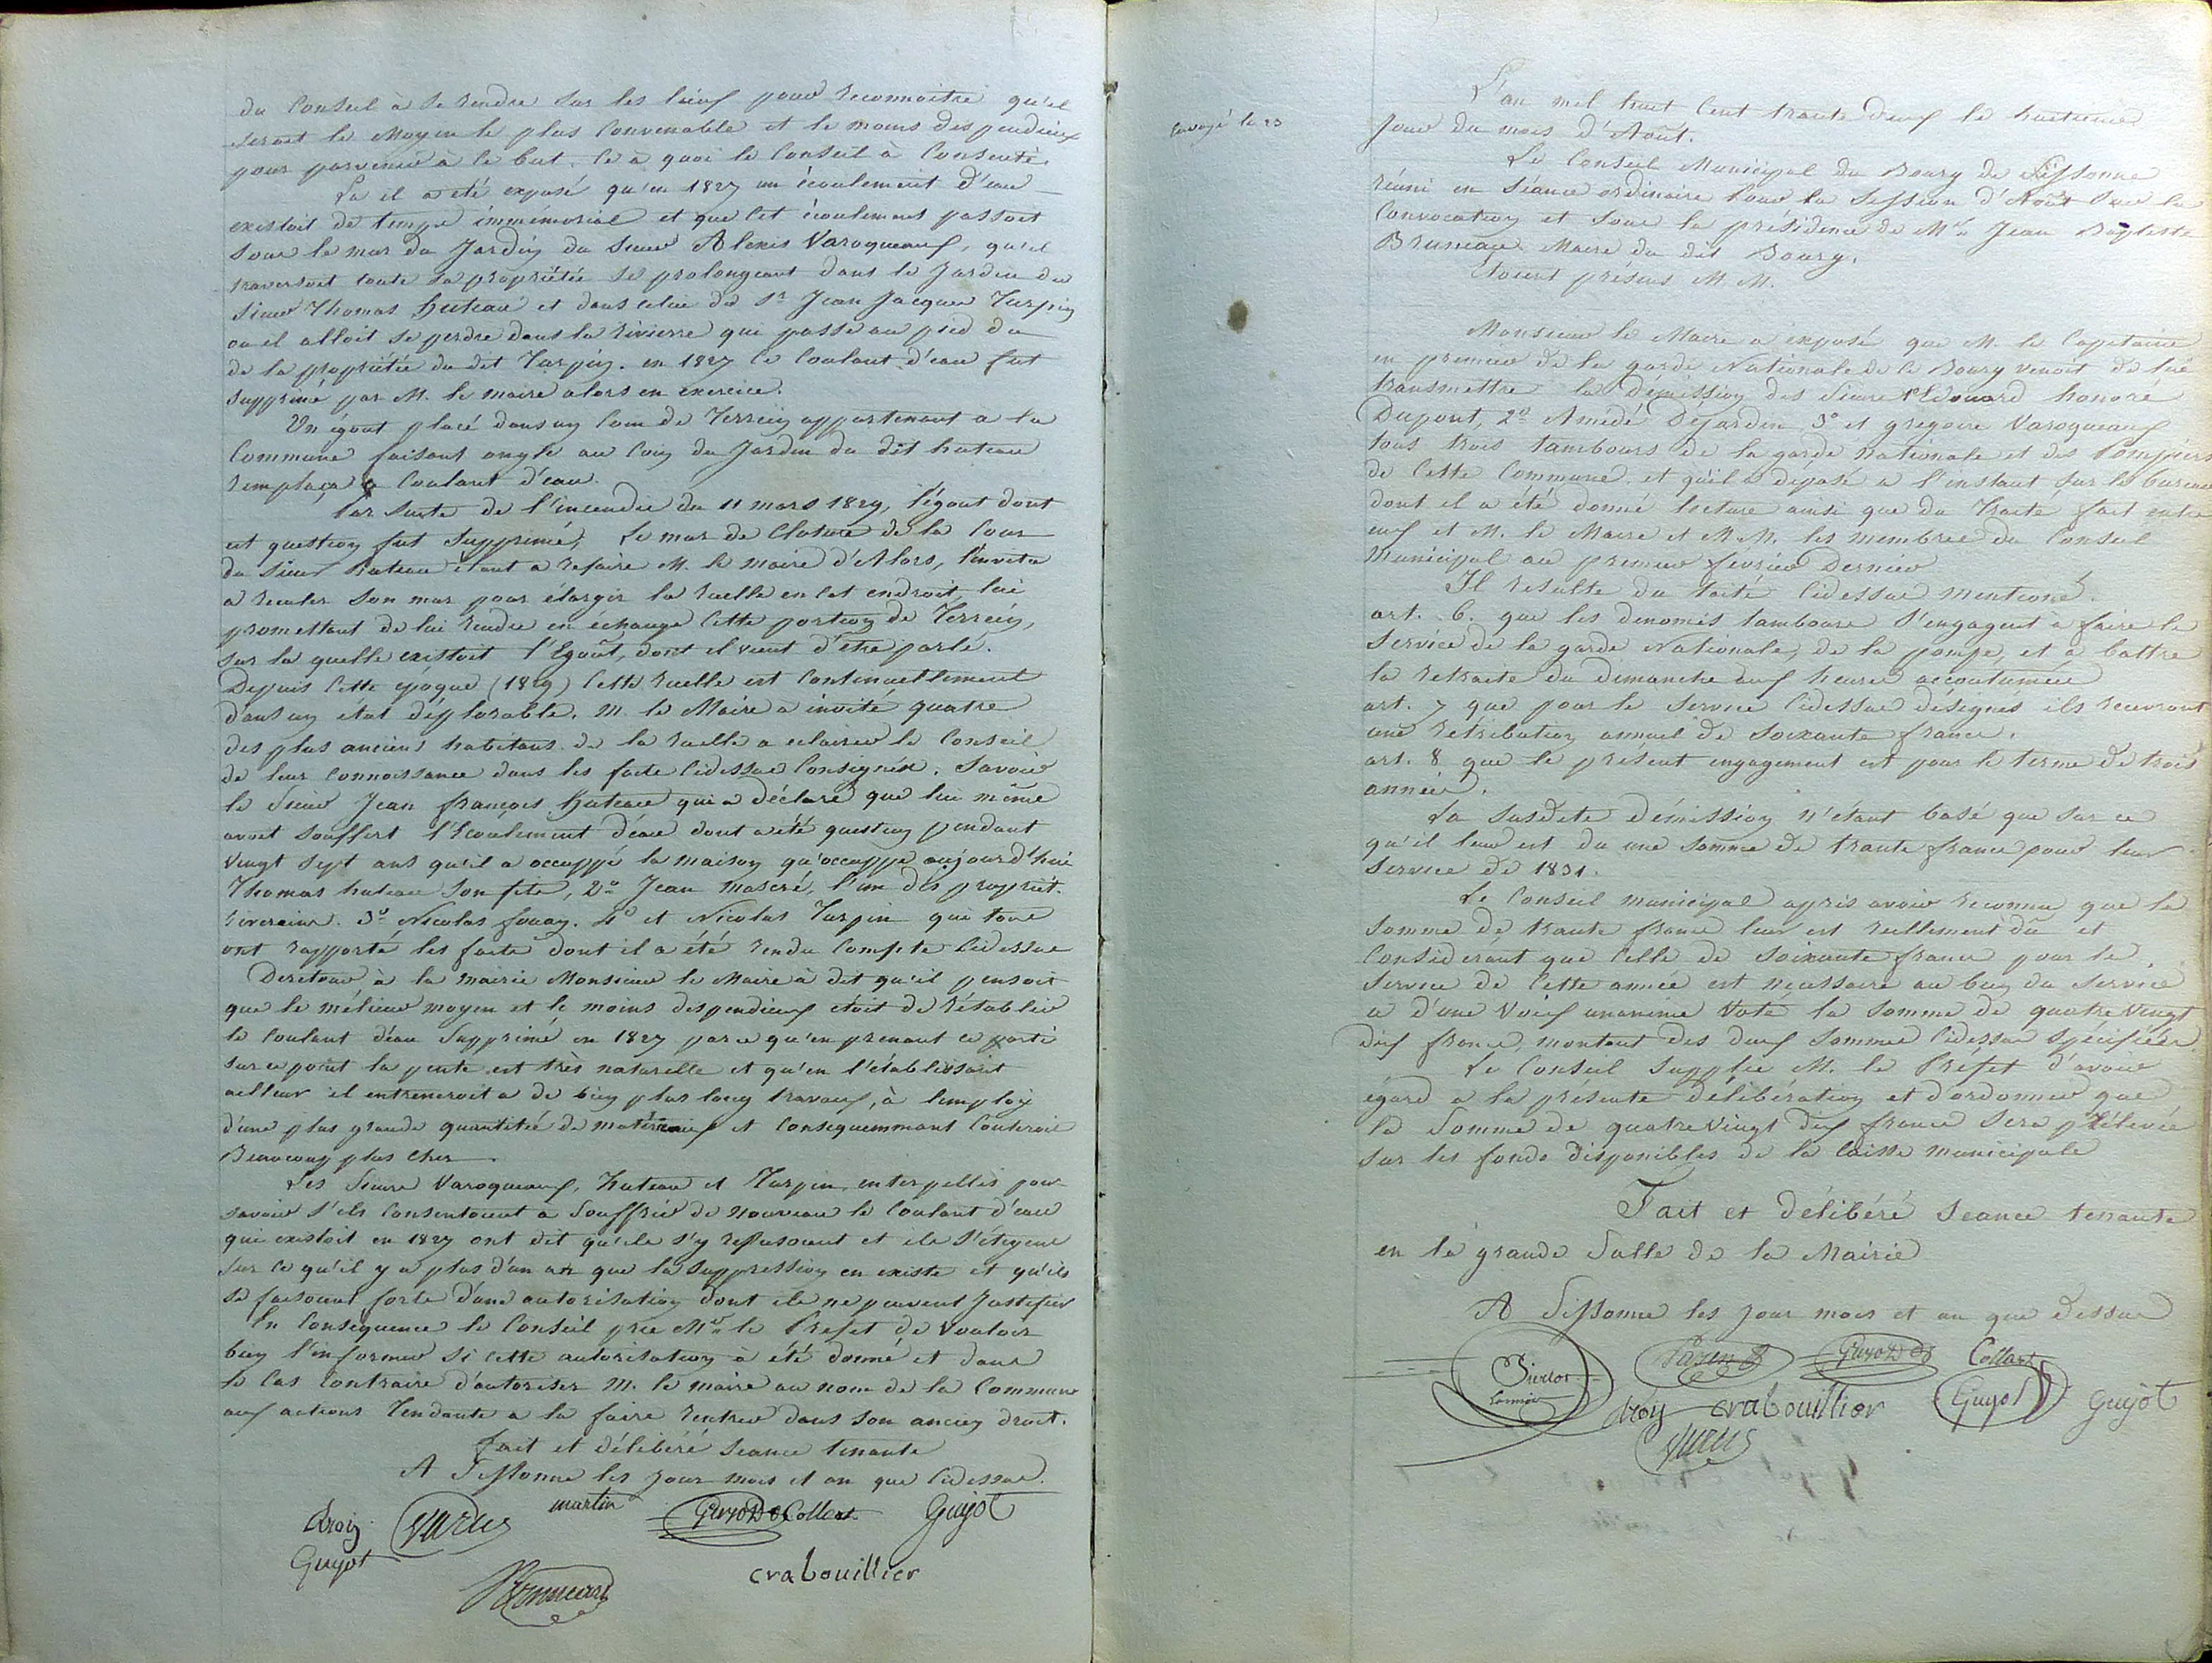 du Conseil à se rendre sur les lieux pour reconnoitre qu'el
seroit le Moyen le plus Convenable et le moins dispendieux
pour parvenir à ce but. Ce à quoi le Conseil à Consenti.
La il a été exposé qu'en 1827 un écoulement d'eau
existoit de temps immémorial et que cet écoulement passoit
sous le mur du Jardin du sieur Alexis Varoqueaux, qu'il
traversoit toute sa propriétée se prolongeant dans le Jardin du
sieur Thomas Huteau et dans celui du Sr Jean Jacques Turpin
ou il alloit se perdre dans la rivierre qui passe au pied du
de la propriétée du dit Turpin. en 1827 ce Coulant d'eau fut
supprimé par M. le maire alors en exercice.
Un égout placé dans un Coin de Terrein appartenant a la
Commune faisant angle au Coin du Jardin du dit huteau
remplaça ce Coulant d'eau.
Par suite de l'incendie du 11 mars 1829, l'égout dont
est question fut supprimé, Le mur de Cloture de la Cour
du sieur Huteau étant a refaire M. le maire d'Alors, l'invita
a reculer son mur pour élargir la ruelle en cet endroit, lui
promettant de lui rendre en échange Cette portion de Terrein,
sur la quelle existoit l'Egoût, dont il vient d'être parlé.
Depuis Cette époque (1829) Cette ruelle est Continuellement
dans un état déplorable. M. le Maire a invité quatre
des plus anciens habitans de la ruelle a eclairer le Conseil
de leur Connoissance dans les faits Cidessus Consignés. Savoir
le Sieur Jean françois Huteau qui a déclaré que lui même
avoit souffert l'Ecoulement d'eau dont a été question pendant
vingt sept ans qu'il a occuppé la maison qu'occuppe aujourd'hui
Thomas huteau son fils, 2o Jean mascré, l'un des propriét.
riverains. 3o Nicolas fouan. 4o et Nicolas Turpin qui tous
ont rapporté les faits dont il a été rendu Compte Cidessus
De retour à la mairie Monsieur le Maire à dit qu'il pensoit
que le mélieur moyen et le moins dispendieux étoit de rétablir
le Coulant d'eau Supprimé en 1827 parce qu'en prenant ce parti
sur ce point la pente est très naturelle et qu'en l'établissant
ailleur il entreneroit a de bien plus long travaux, à l'emploi
d'une plus grande quantitée de matériaux et Consequemmant Couteroit
Beaucoup plus cher.
Les Sieurs Varoqueaux, Huteau et Turpin interpellés pour
savoir s'ils Consentoient a Souffrir de nouveau le Coulant d'eau
qui existoit en 1827 ont dit qu'ils s'y reffusoient et ils s'étayent
sur ce qu'il y a plus d'un an que la suppression en existe et qu'ils
se faisoient forts d'une autorisation dont ils ne peuvent Justifier
En Conséquence le Conseil prie Mr le Prefet de vouloir
bien l'informer si cette autorisation à été donné et dans
le Cas Contraire d'autoriser M. le maire au nom de la Commune
aux actions Tendante a la faire rentrer dans son ancien droit.
fait et délibéré seance tenante
A Sissonne les jour mois et an que Cidessus.
droin Varlus martin Guyot Collart Guyot
Guyot
Bruneau crabouillier
Envoyé le 23
L'an mil huit Cent trente deux le huitieme
jour du mois d'Août.
Le Conseil Municipal du Bourg de Sissonne
réuni en séance ordinaire pour la session d'Août sur la
Convocation et sous la présidence de Mr Jean Baptiste
Bruneau Maire du dit Bourg.
Etoient présens M. M.
Monsieur le Maire a exposé que M. le Capitaine
en premier de la garde Nationale de ce Bourg venoit de lui
transmettre la Démission des Sieurs 1o Edouard honoré
Dupont, 2o Amédé Dejardin 3o et grégoire Varoqueaux
tous trois tambours de la garde nationale et des Pompiers
de Cette Commune. et qu'il a déposé a l'instant sur le bureau
dont il a été donné lecture ainsi que du Traité fait entre
eux et M. le Maire et M.M. les membres du Conseil
Municipal au premier février Dernier.
Il résulte du traité Cidessus mentioné.
art. 6. que les denomés tambours s'engagent à faire le
service de la garde Nationale, de la pompe, et à battre
la retraite du dimanche aux heures accoutumées
art. 7 que pour le service Cidessus désignés ils recevront
une rétribution annuel de soixante francs.
art. 8 que le présent engagement est pour le terme de trois
années.
La susdite démission n'étant basé que sur ce
qu'il leur est du une somme de trante francs pour leur
service de 1831.
Le Conseil municipal après avoir reconnu que la
somme de trante francs leur est réellement dû et
Considérant que Celle de soixante francs pour le
service de Cette année est nécessaire au bien du service
a d'une Voix unanime Voté la somme de quatre vingt
dix francs, montant des deux sommes Cidessus spécifiées.
Le Conseil supplie M. le Préfet d'avoir
égard a la présente délibération et d'ordonner que
la Somme de quatre vingt dix francs sera prélevée
sur les fonds disponibles de la Caisse municipale
Fait et délibéré seance tenante
en la grande Salle de la Mairie
A Sissonne les jour mois et an que dessus
Guyot Collart
droin crabouillier Guyot Guyot
Varlus